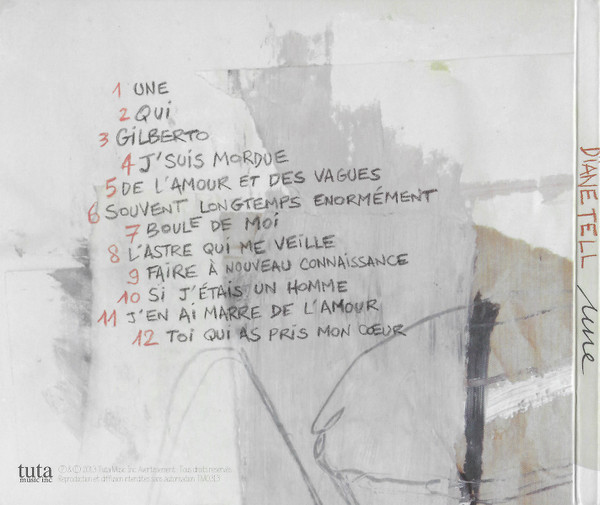 1 UNE
2 QUI
3 GILBERTO
4 J'SUIS MORDUE
5 DE L'AMOUR ET DES VAGUES
6 SOUVENT LONGTEMPS ENORMÉMENT
7 BOULE DE MOI
8 L'ASTRE QUI ME VEILLE
9 FAIRE À NOUVEAU CONNAISSANCE
10 SI J'ÉTAIS UN HOMME
11 J'EN AI MARRE DE L'AMOUR
12 TOI QUI AS PRIS MON CŒUR
DIANE TELL une
tuta
music inc
Ⓟ & © 2013 Tuta Music Inc. Avertissement : Tous droits réservés.
Reproduction et diffusion interdites sans autorisation.